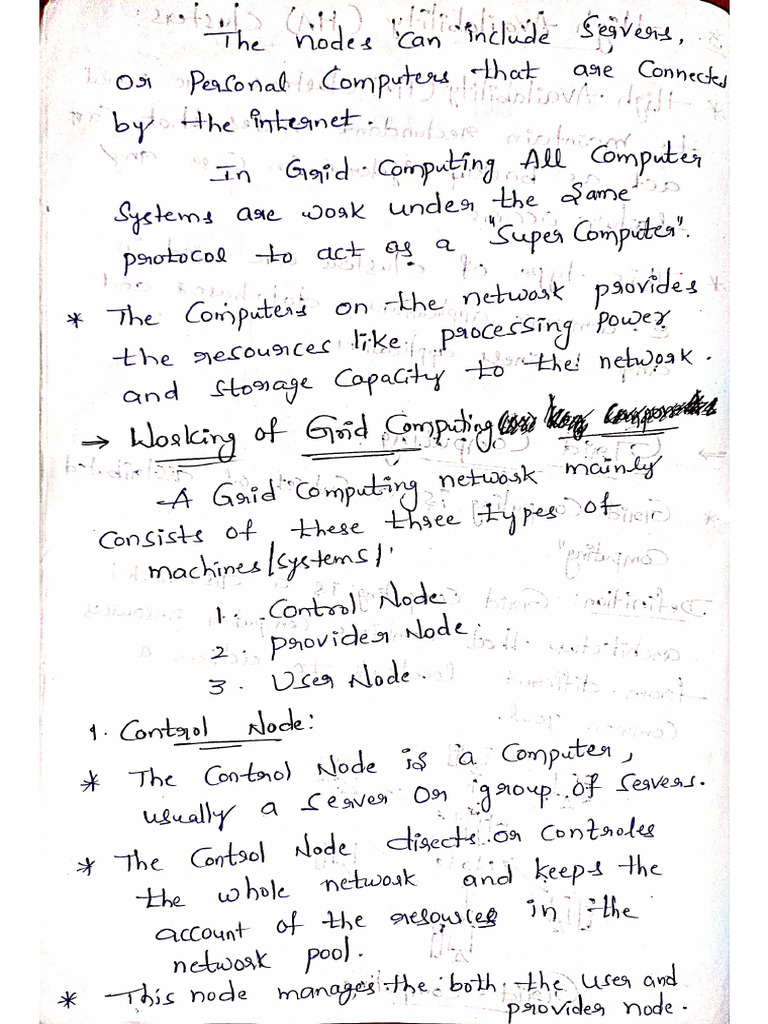 The nodes can include Servers,
or Personal Computers that are Connected
by the internet.
In Grid Computing All Computer
Systems are work under the Same
protocol to act as a "Super Computer".
* The Computers on the network provides
the resources like processing Power
and storage Capacity to the network.
→ Working of Grid Computing
A Grid Computing network mainly
Consists of these three types of
machines/systems/
1. Control Node
2. provider Node.
3. User Node.
1. Control Node:
* The Control Node is a Computer,
usually a server or group of servers.
* The Control Node directs or controles
the whole network and keeps the
account of the resources in the
network pool.
* This node manages the both the user and
provider node.